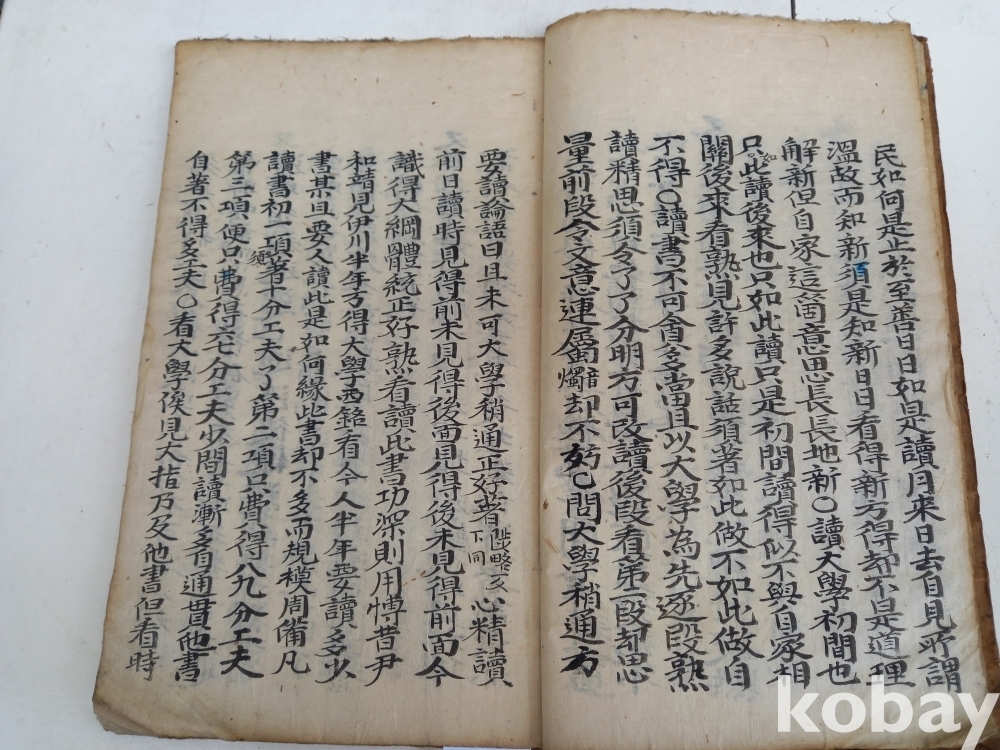 民如何是止於至善日日如是讀月來日去自見所謂
溫故而知新須是知新日日看得新方得却不是道理
解新但自家這箇意思長長地新○讀大學初間也
只如此讀後來也只如此讀只是初間讀得似不與自家相
關後來看熟見許多說話須著如此做不如此做自
不得○讀書不可貪多當且以大學為先逐段熟
讀精思須令了了分明方可改讀後段看第二段却思
量前段令文意連屬燭音却不妨○問大學稍通方
要讀論語曰且未可大學稍通正好著心精讀
陛略反下同
前日讀時見得前未見得後面見得後未見得前面今
識得大綱體統正好熟看讀此書功深則用博昔尹
和靖見伊川半年方得大學西銘看今人半年要讀多少
書某且要人讀此是如何緣此書却不多而規模周備凡
讀書初一項須著十分工夫了第二項只費得八九分工夫
第三項便只費得六七分工夫少間讀漸多自通貫他書
自著不得多工夫○看大學俟見大指乃及他書但看時
kobay